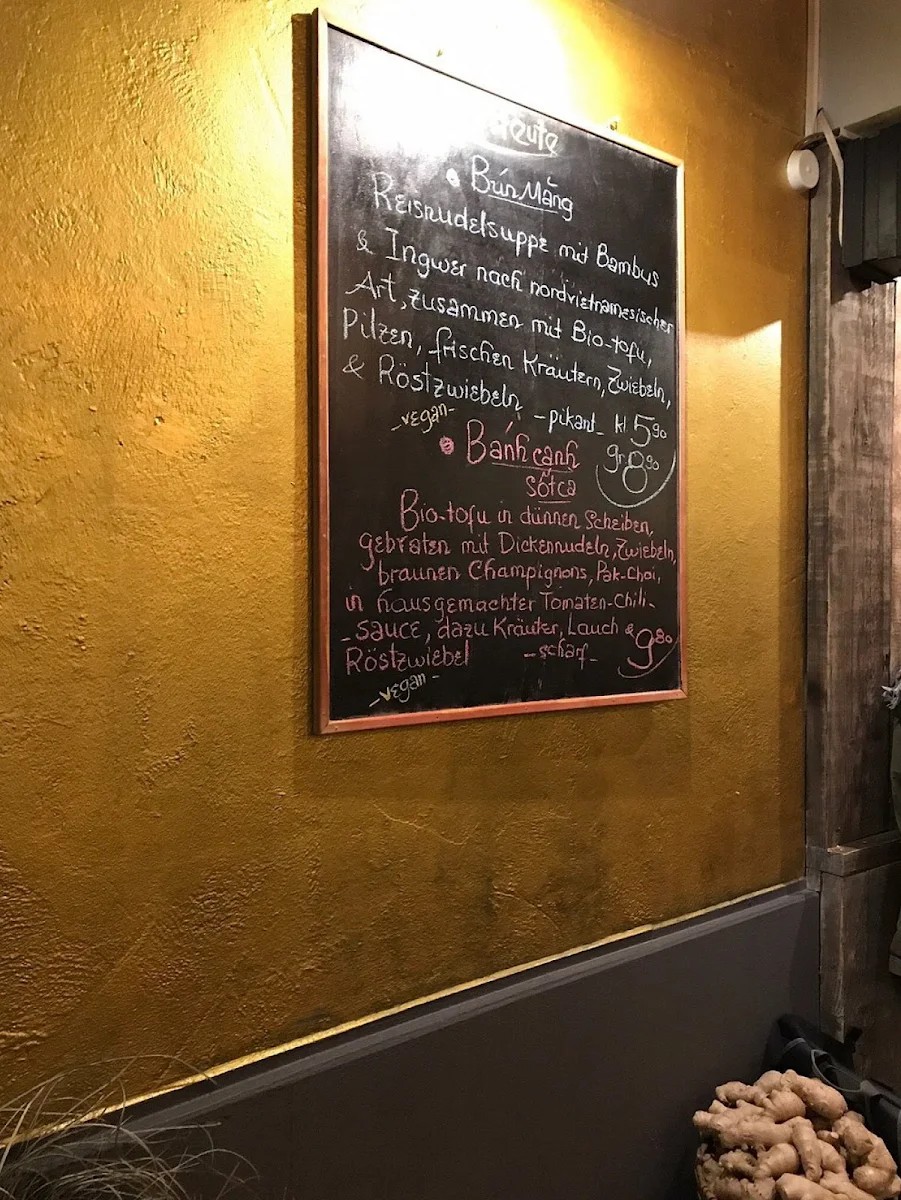 Heute
• Bún Măng
Reisnudelsuppe mit Bambus
& Ingwer nach nordvietnamesischer
Art, zusammen mit Bio-tofu,
Pilzen, frischen Kräutern, Zwiebeln,
& Röstzwiebeln -pikant- kl 5,90
-vegan- gr 8,90
• Bánh canh
sốt cà
Bio-tofu in dünnen Scheiben,
gebraten mit Dickennudeln, Zwiebeln,
braunen Champignons, Pak-Choi,
in hausgemachter Tomaten-Chili-
-sauce, dazu Kräuter, Lauch &
Röstzwiebel -scharf- 9,80
-vegan-